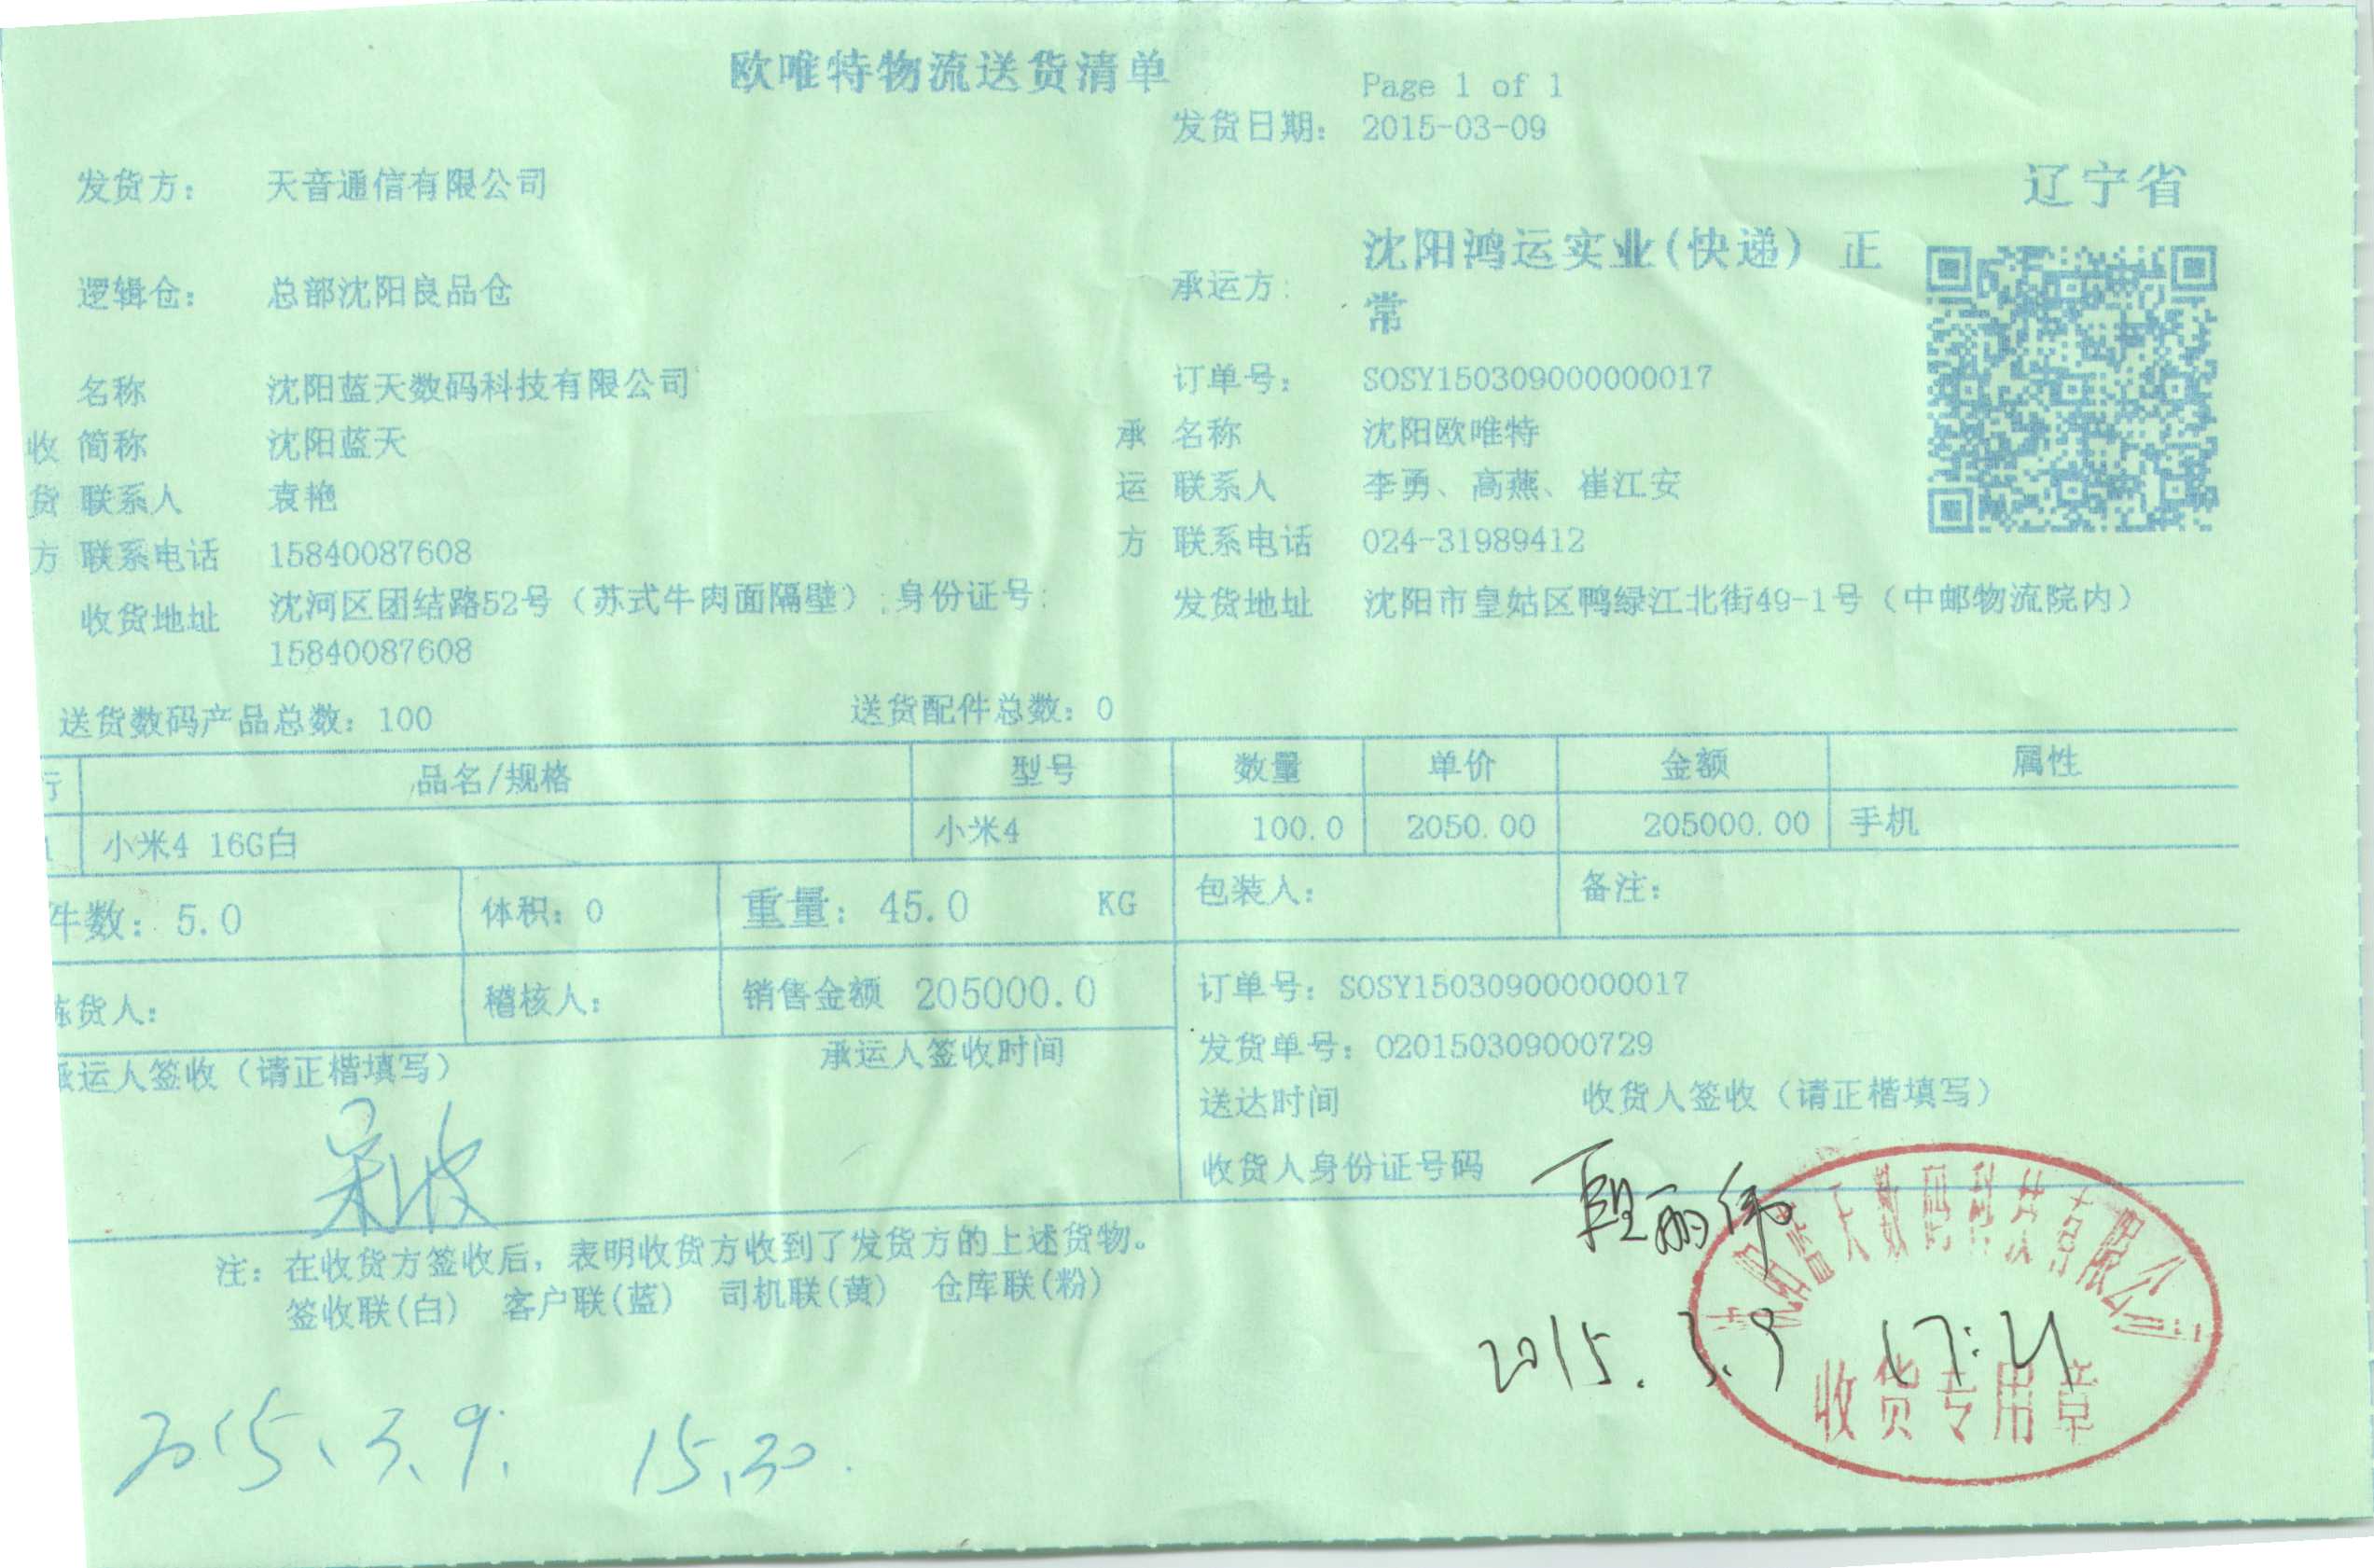 欧唯特物流送货清单
Page 1 of 1
发货日期: 2015-03-09
发货方: 天音通信有限公司
辽宁省
逻辑仓: 总部沈阳良品仓
承运方: 沈阳鸿运实业(快递) 正
常
名称 沈阳蓝天数码科技有限公司
订单号: SOSY150309000000017
收 简称 沈阳蓝天
承 名称 沈阳欧唯特
货 联系人 袁艳
运 联系人 李勇、高燕、崔江安
方 联系电话 15840087608
方 联系电话 024-31989412
收货地址 沈河区团结路52号（苏式牛肉面隔壁）;身份证号:
15840087608
发货地址 沈阳市皇姑区鸭绿江北街49-1号（中邮物流院内）
送货数码产品总数: 100 送货配件总数: 0
行 品名/规格 型号 数量 单价 金额 属性
1 小米4 16G白 小米4 100.0 2050.00 205000.00 手机
件数: 5.0 体积: 0 重量: 45.0 KG 包装人: 备注:
拣货人: 稽核人: 销售金额 205000.0
订单号: SOSY150309000000017
发货单号: 020150309000729
承运人签收（请正楷填写） 承运人签收时间
送达时间 收货人签收（请正楷填写）
收货人身份证号码
吴波
段丽伟
注: 在收货方签收后，表明收货方收到了发货方的上述货物。
签收联(白) 客户联(蓝) 司机联(黄) 仓库联(粉)
沈阳蓝天数码科技有限公司
收货专用章
2015.3.9 17:21
2015.3.9. 15.30.